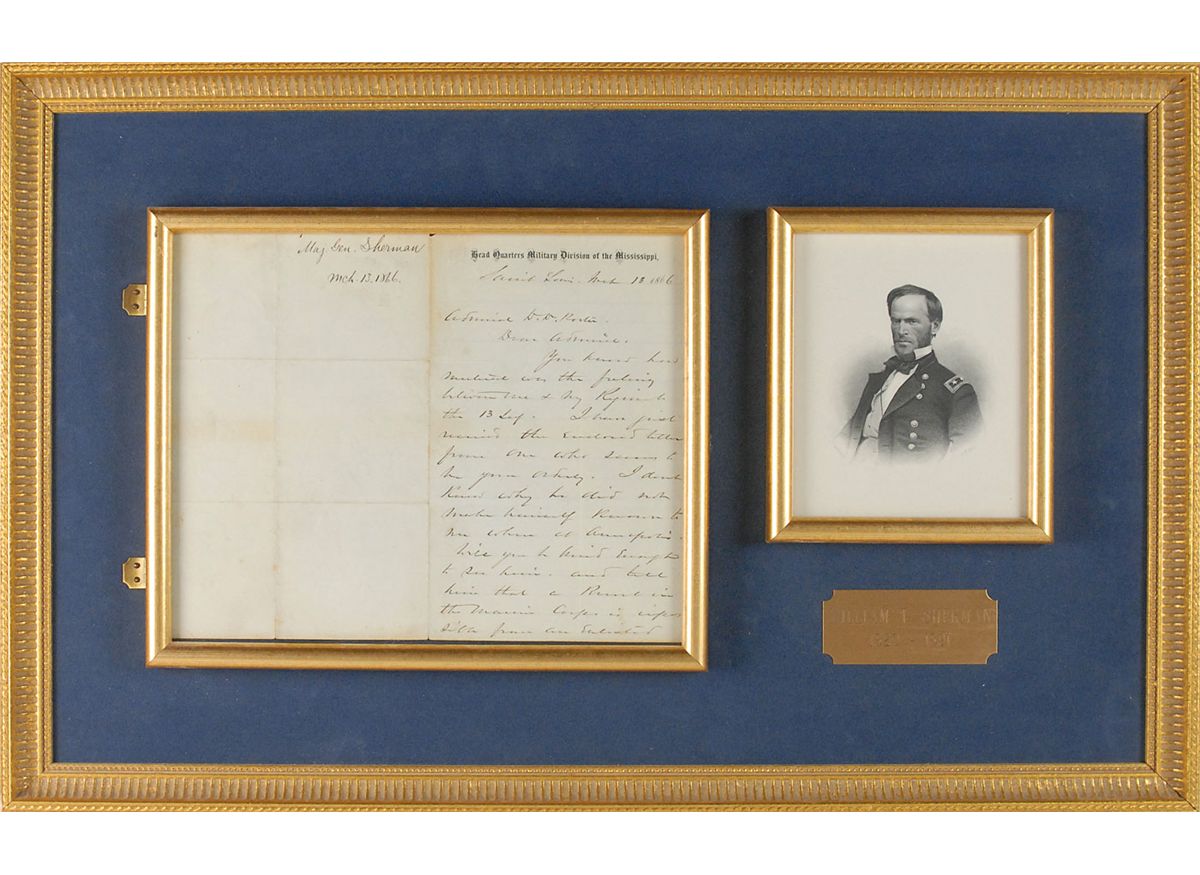 Maj Gen. Sherman
Mch. 13. 1866.
Head Quarters Military Division of the Mississippi,
Saint Louis. Mch 13 1866
Admiral D. D. Porter.
Dear Admiral.
You know how
mutual was the feeling
between me & my Regiment
the 13 Inf. I have just
received the enclosed letter
from one who seems to
be your orderly. I dont
Know why he did not
make himself Known to
me when at Annapolis.
Will you be kind enough
to see him. and tell
him that a
the Marine Corps is
from an Enlisted
WILLIAM T. SHERMAN